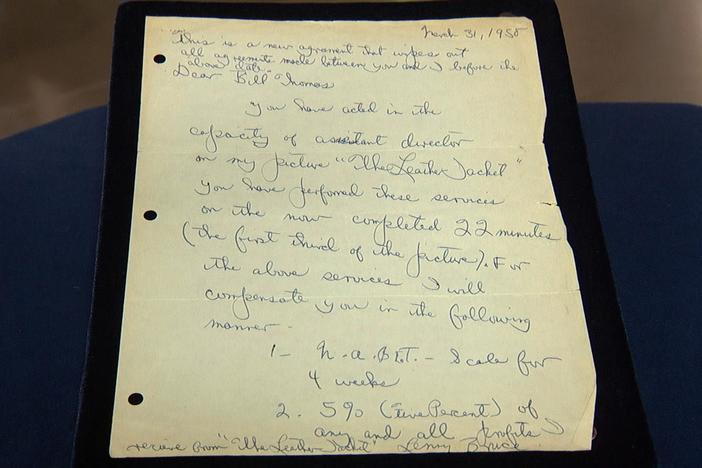 March 31, 1958
This is a new agreement that wipes out
all agreements made between you and I before the
above date
Dear Bill Thomas
You have acted in the
capacity of assistant director
on my picture "The Leather Jacket"
You have performed these services
on the now completed 22 minutes
(the first third of the picture). For
the above services I will
compensate you in the following
manner -
1- N.A.B.E.T. - Scale for
4 weeks
2. 5% (Five Percent) of
any and all profits I
receive from "The Leather Jacket" Lenny Bruce